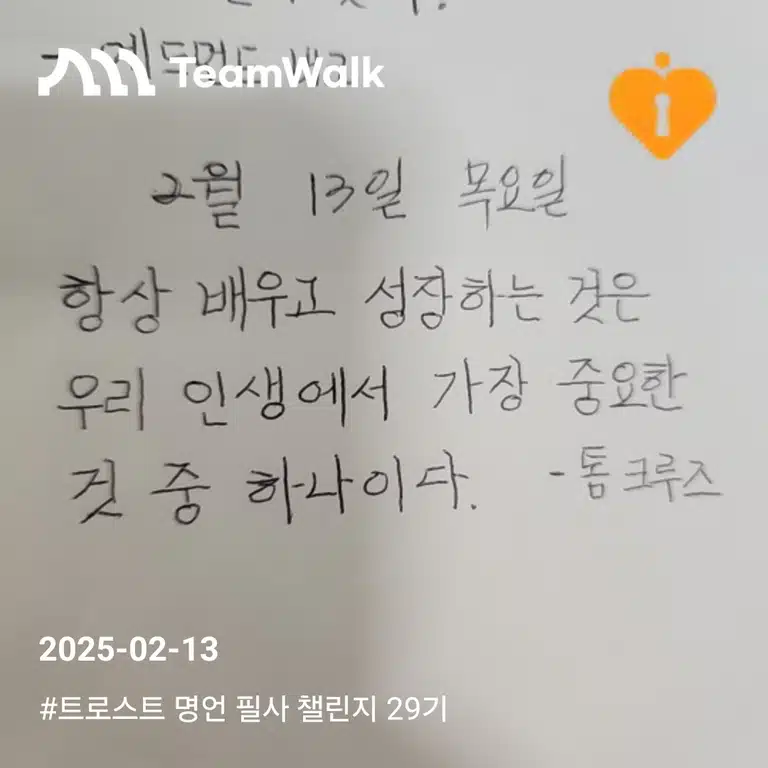 TeamWalk
2월 13일 목요일
항상 배우고 성장하는 것은
우리 인생에서 가장 중요한
것 중 하나이다. - 톰 크루즈
2025-02-13
#트로스트 명언 필사 챌린지 29기